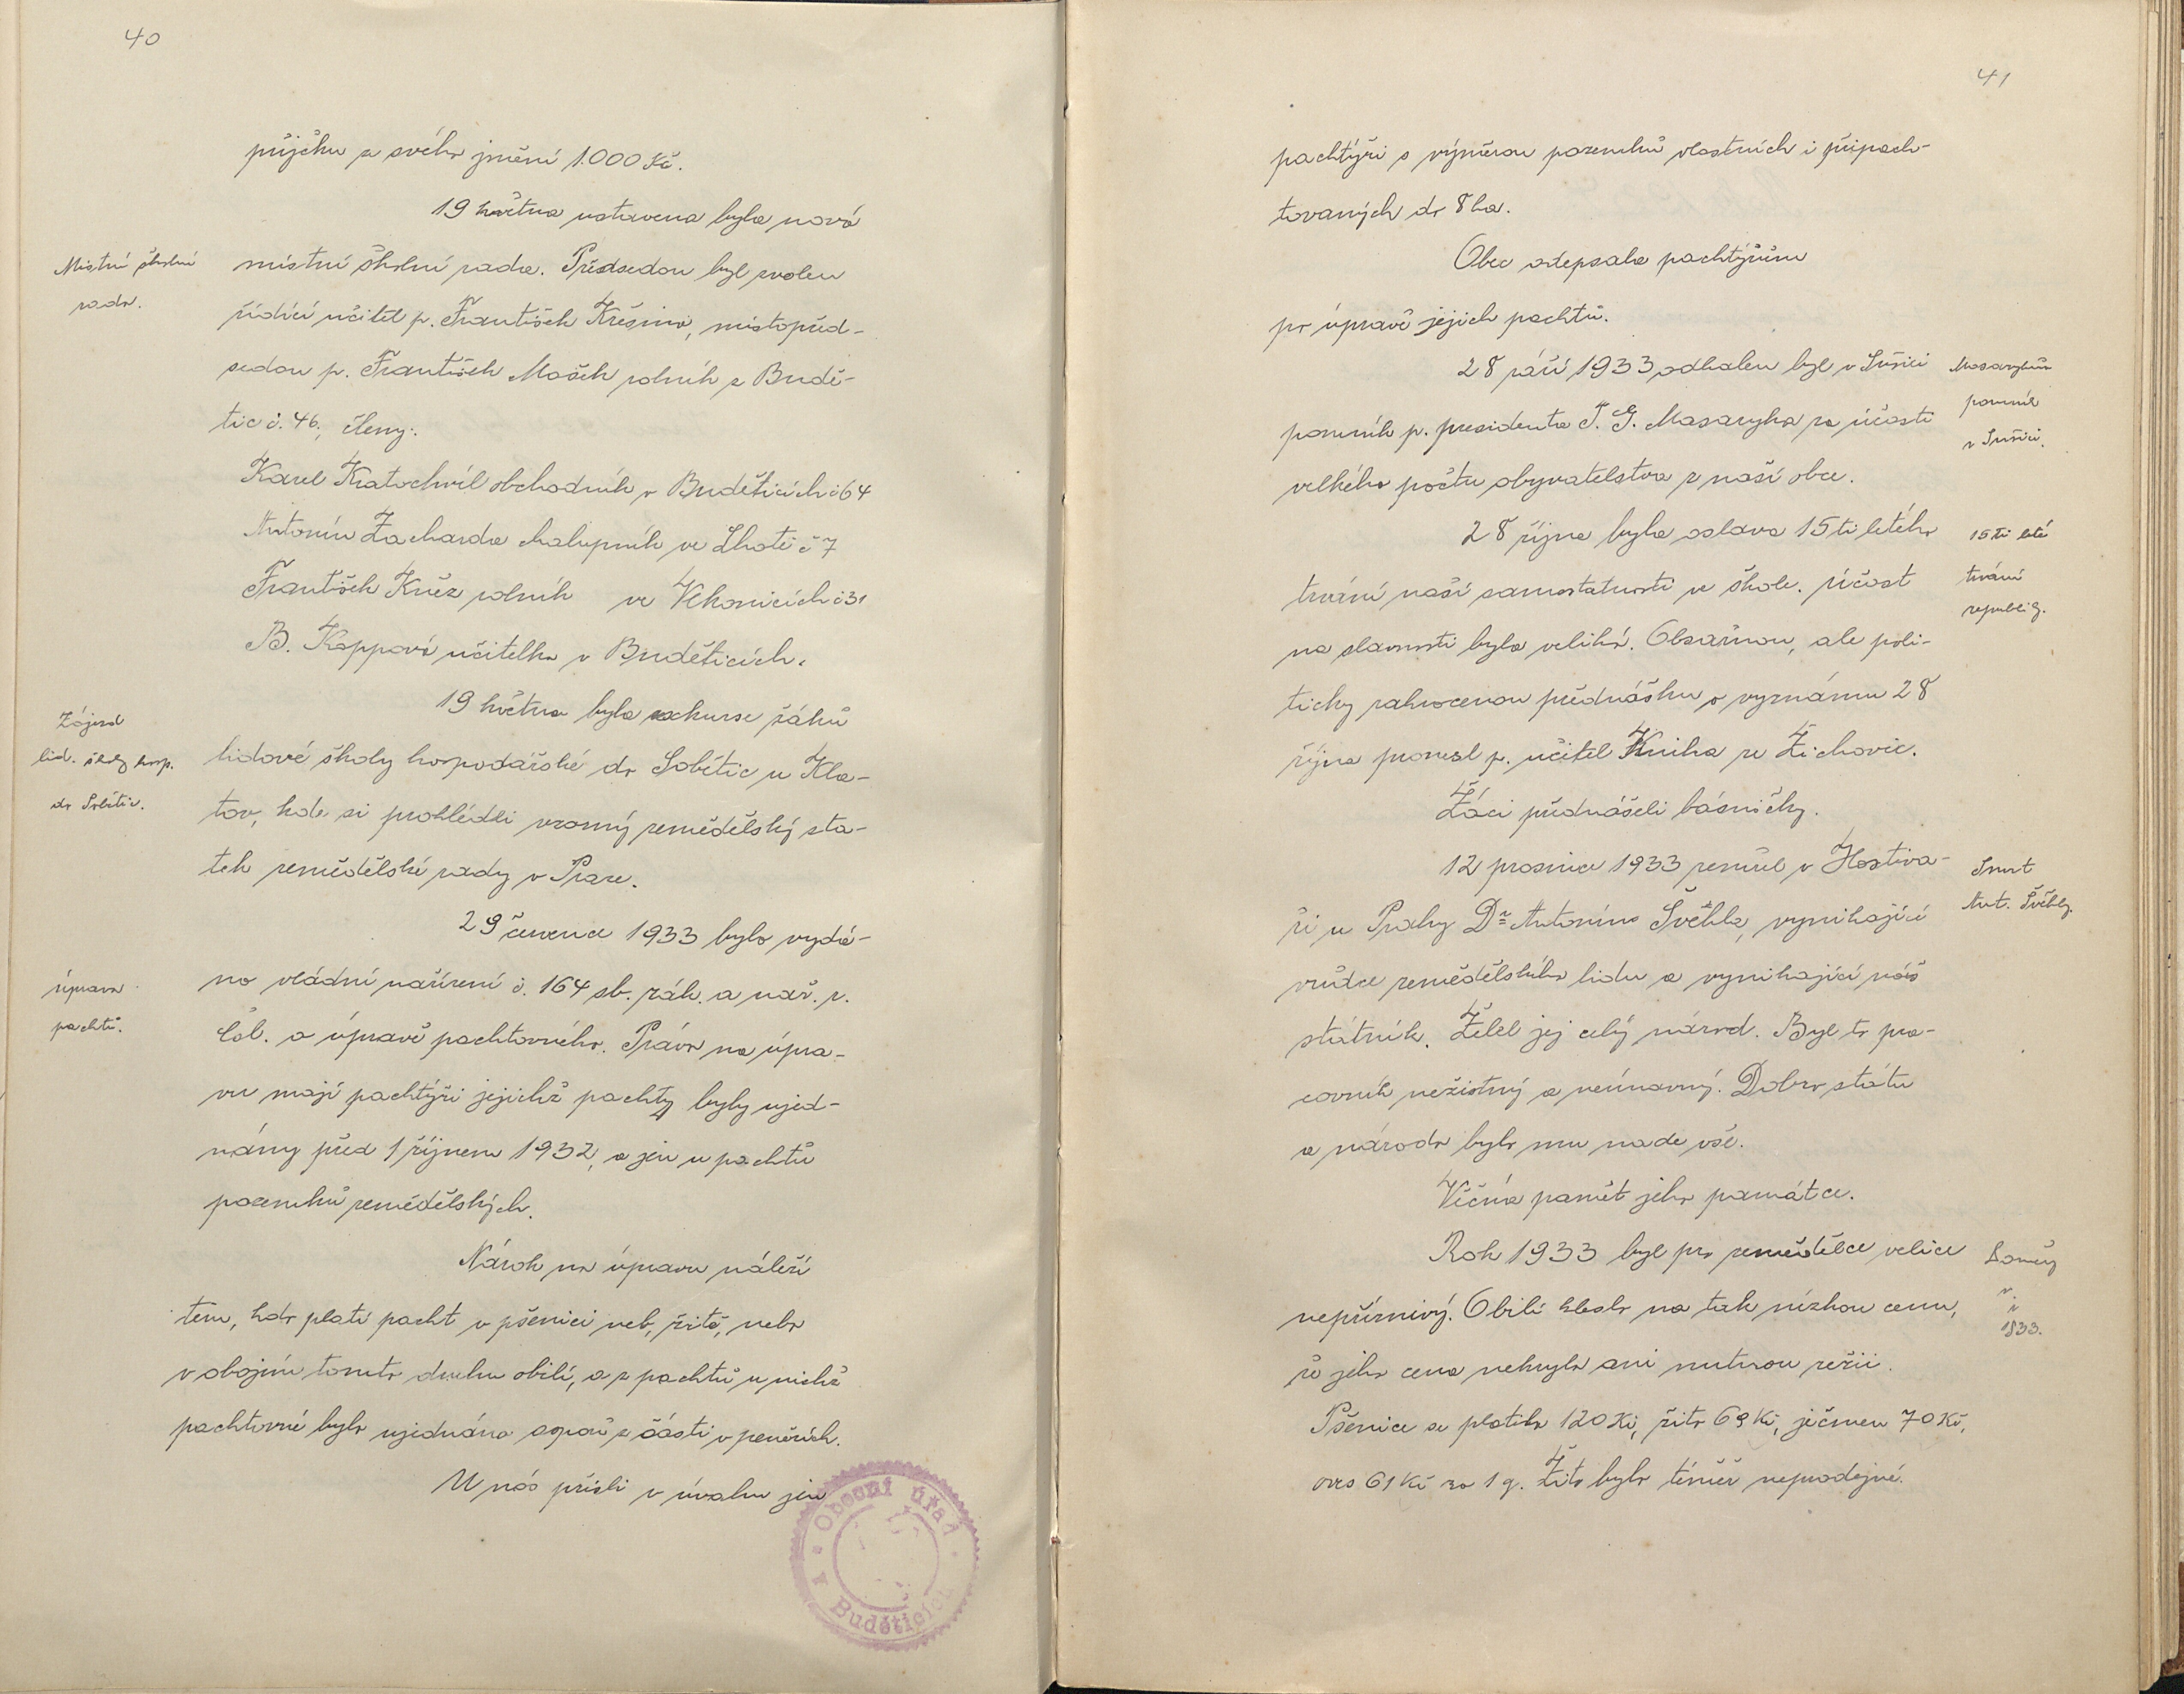 40
půjčku ze svého jmění 1.000 Kč.
19 května ustavena byla nová
Místní školní
rada.
místní školní rada. Předsedou byl zvolen
řídící učitel p. František Křesina, místopřed-
sedou p. František Mašek rolník z Budě-
tic č. 46., členy:
Karel Kratochvíl obchodník v Buděticích č 64
Antonín Zacharda chalupník ve Lhotě č 7
František Kněz rolník ve Vlkonicích č 31
B. Kappová učitelka v Buděticích.
19 května byla exkurse žáků
Zájezd
lid. školy hosp.
do Sobětic.
lidové školy hospodářské do Sobětic u Kla-
tov, kde si prohlédli vzorný zemědělský sta-
tek zemědělské rady v Praze.
29 července 1933 bylo vydá-
úprava
pachtů.
no vládní nařízení č. 164 sb. zák. a nař. r.
Čsl. o úpravě pachtovného. Právo na úpra-
vu mají pachtýři jejichž pachty byly ujed-
nány před 1 říjnem 1932, a jen u pachtů
pozemků zemědělských.
Nárok na úpravu náleží
tem, kdo platí pacht v pšenici neb, žitě, nebo
v obojím tomto druhu obilí, a z pachtů u nichž
pachtovné bylo ujednáno aspoň z části v penězích.
U nás přišli v úvahu jen
Obecní úřad
v Buděticích
41
pachtýři s výměrou pozemků vlastních i připach-
tovaných do 8 ha.
Obec odepsala pachtýřům
po úpravě jejich pachtů.
28 září 1933 odhalen byl v Sušici
Masarykův
pomník
v Sušici.
pomník p. presidenta T. G. Masaryka za účasti
velkého počtu obyvatelstva z naší obce.
28 října byla oslava 15ti letého
15ti leté
trvání
republiky.
trvání naší samostatnosti ve škole. Účast
na slavnosti byla veliká. Obsažnou, ale poli-
ticky zahrocenou přednášku o významu 28
října pronesl p. učitel Kniha ze Žichovic.
Žáci přednášeli básničky.
12 prosince 1933 zemřel v Hostiva-
Smrt
Ant. Švehly.
ři u Prahy Dr Antonín Švehla, vynikající
vůdce zemědělského lidu a vynikající náš
státník. Želel jej celý národ. Byl to pra-
covník nezištný a neúnavný. Dobro státu
a národa bylo mu nade vše.
Věčná paměť jeho památce.
Rok 1933 byl pro zemědělce velice
nepříznivý. Obilí kleslo na tak nízkou cenu,
r.
1933.
že jeho cena nekryla ani nutnou režii.
Pšenice se platila 120 Kč, žito 69 Kč, ječmen 70 Kč,
oves 61 Kč za 1 q. Žito bylo téměř neprodejné.